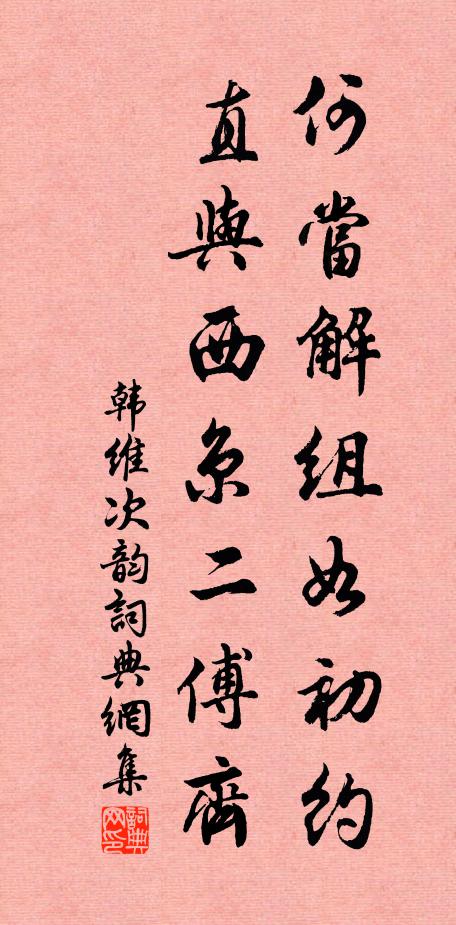 何當解組如初約
直與西京二傅齊
韩维次韵詞典網集
詞典
网印